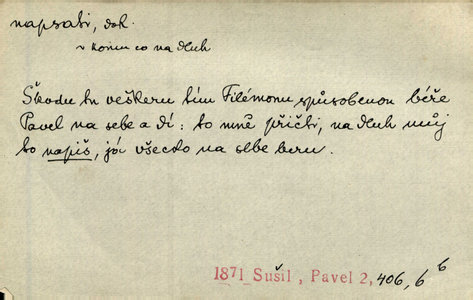 napsati, dok.
v komu co na dluh
Škodu tu veškeru tím Filémonu způsobenou béře
Pavel na sebe a dí: to mně přičti, na dluh můj
to napiš, já všecko na sebe beru.
1871 Sušil, Pavel 2, 406, 6 6